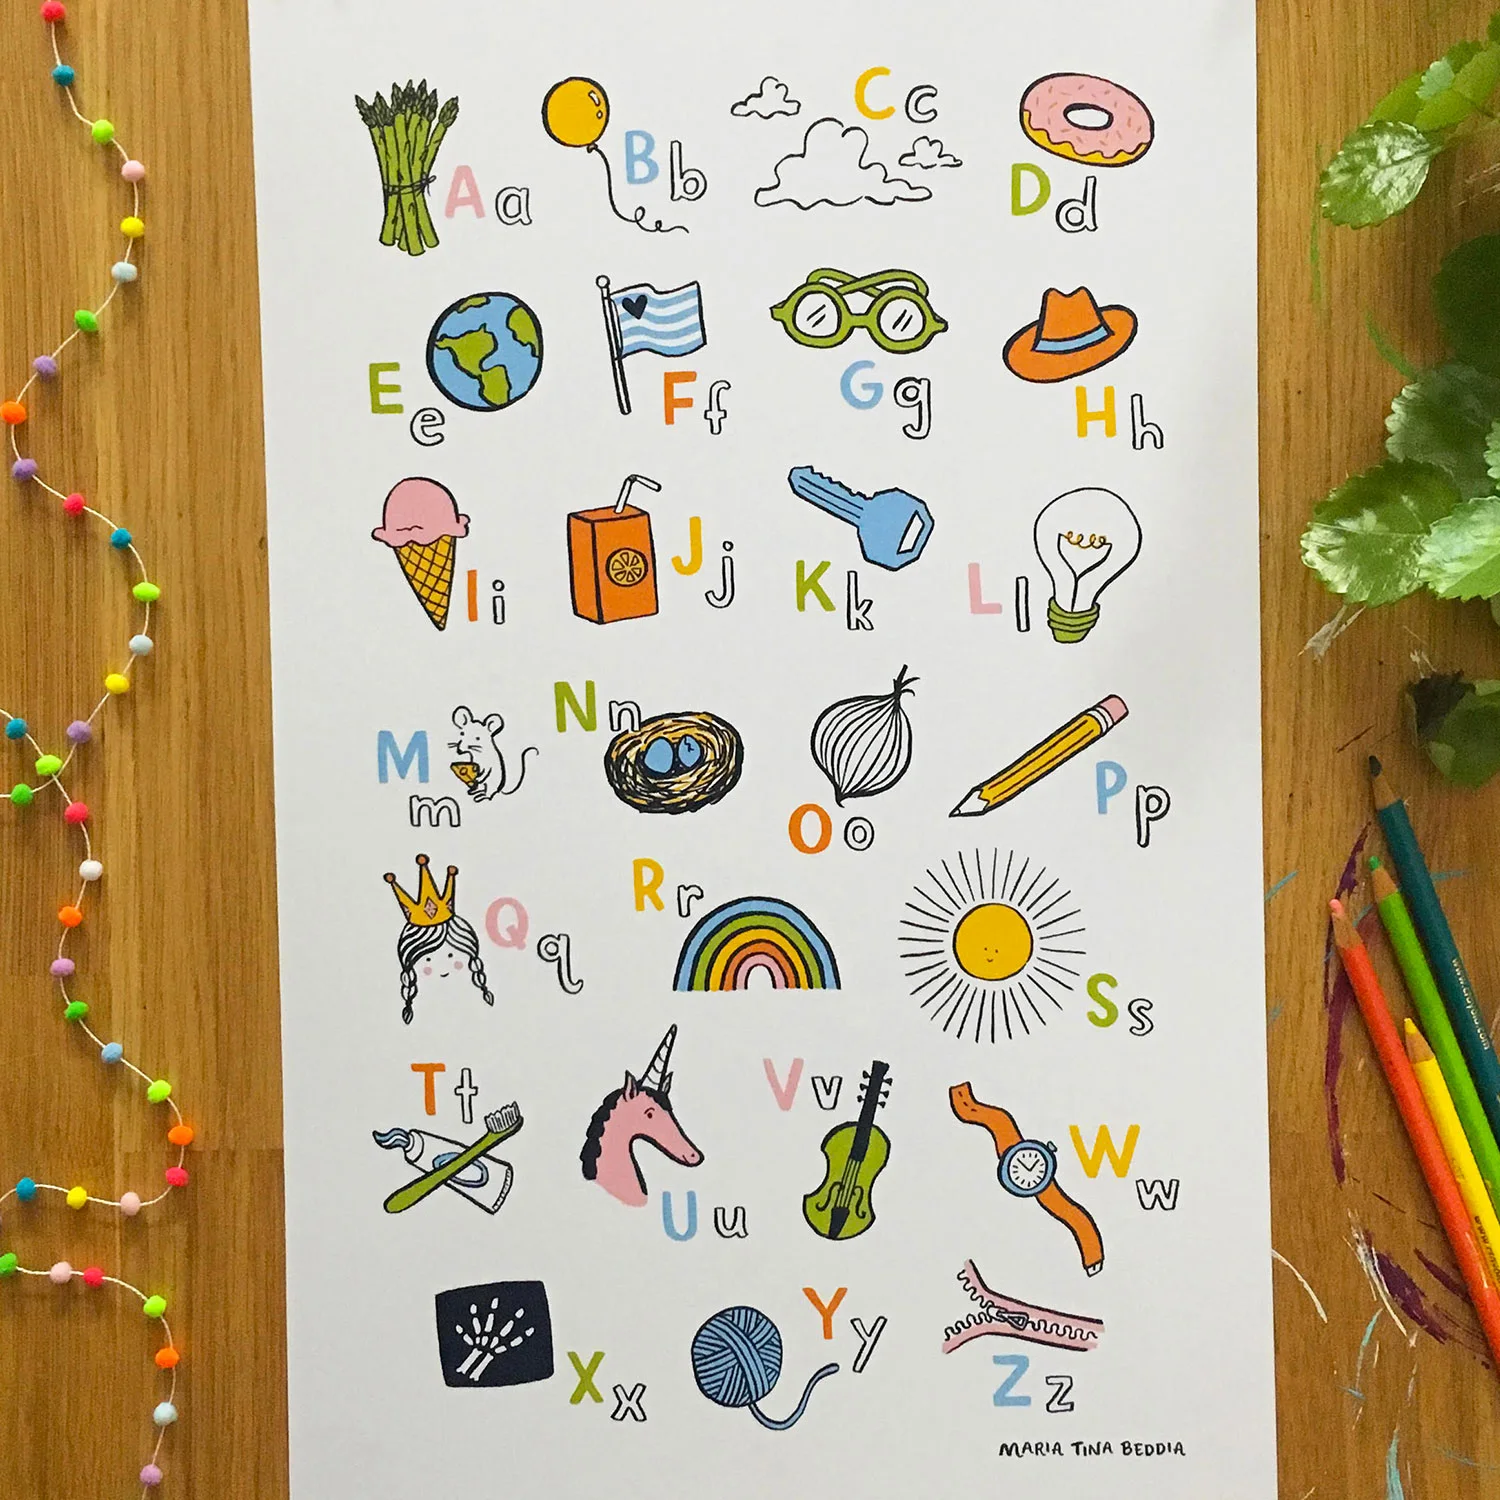 A a
B b
C c
D d
E e
F f
G g
H h
I i
J j
K k
L l
M m
N n
O o
P p
Q q
R r
S s
T t
U u
V v
W w
X x
Y y
Z z
MARIA TINA BEDDIA
www.crayola.com